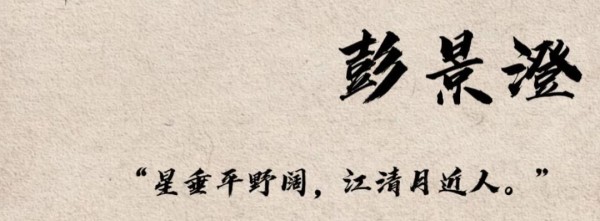 彭景澄
“星垂平野阔，江清月近人。”